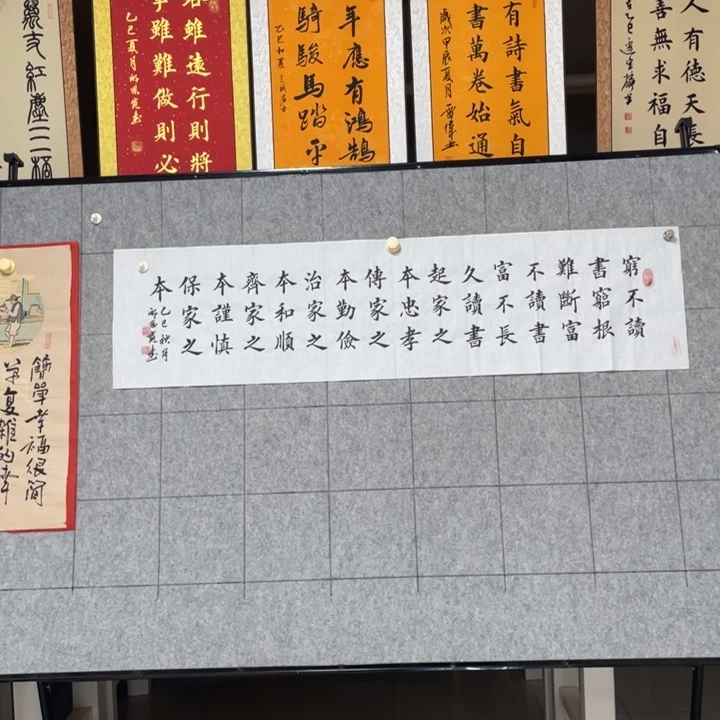 人有德天長
善無求福自
有詩書氣自
書萬卷始通
歲次甲辰夏月
年應有鴻鵠
騎駿馬踏平
乙巳初夏
雖遠行則將
雖難做則必
乙巳夏月
紅塵
窮不讀
書窮根
難斷富
不讀書
富不長
久讀書
起家之
本忠孝
傳家之
本勤儉
治家之
本和順
齊家之
本謹慎
保家之
本
乙巳秋月
簡單幸福很簡